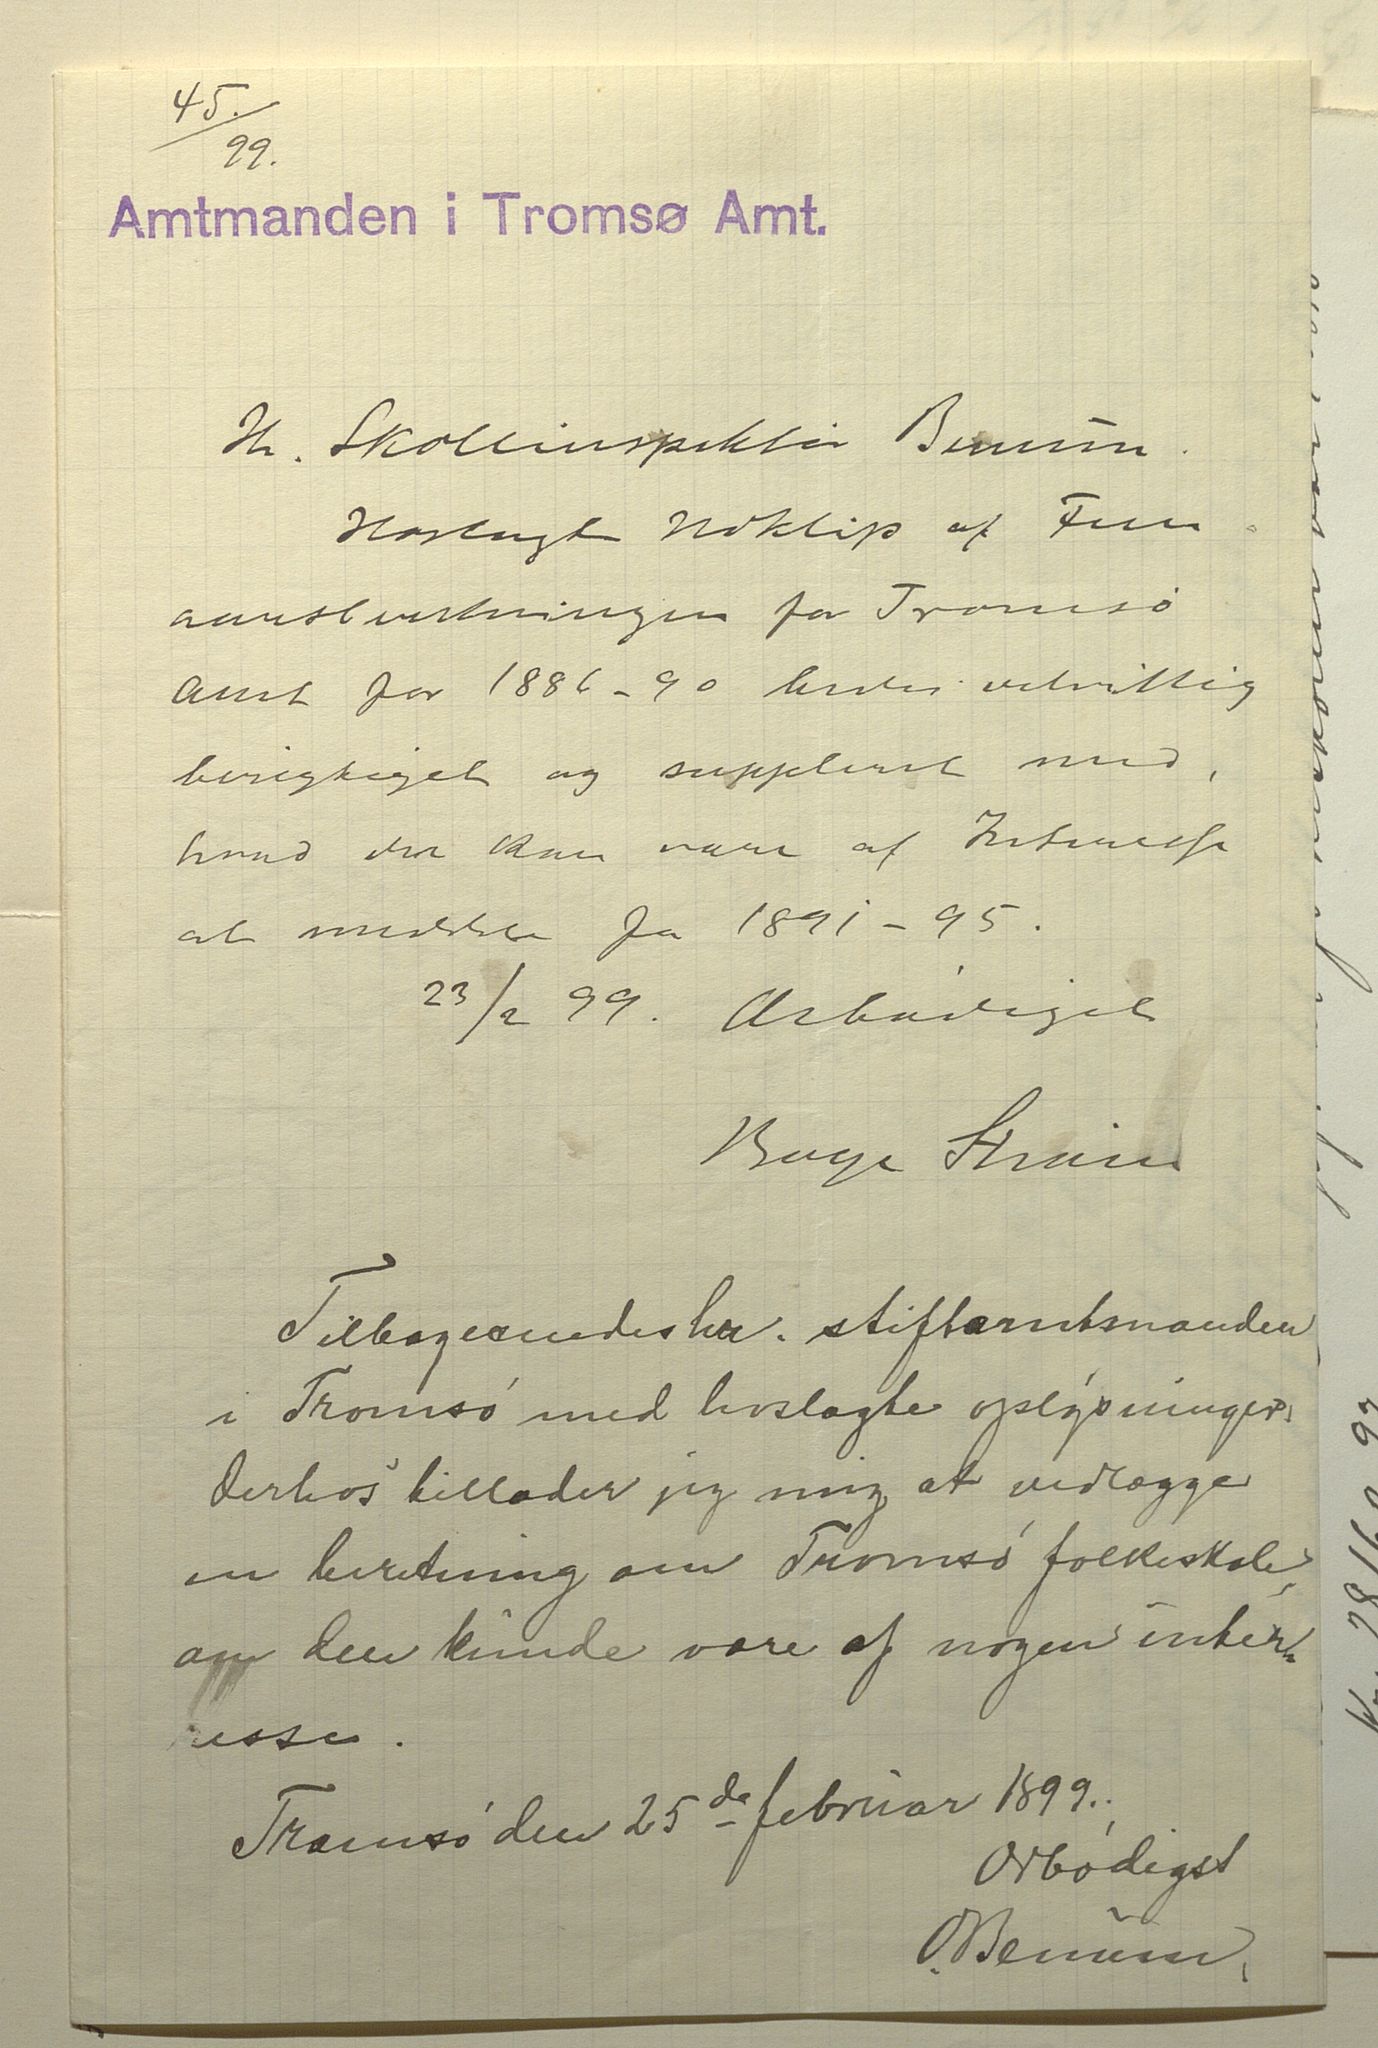 45.
99.
Amtmanden i Tromsø Amt.
Hr. Skoleinspektør Bennum.
Hoslagt Udklip af Fem-
aarsberetningen for Tromsø
Amt for 1886-90 bedes velvillig
berigtiget og suppleret med,
hvad der kan være af Interesse
at meddele for 1891-95.
23/2 99. Ærbødigst
Boye Strøm
Tilbagesendes hr. stiftamtmanden
i Tromsø med hoslagte oplysninger.
Derhos tillader jeg mig at vedlægge
en beretning om Tromsø folkeskole,
om den kunde være af nogen inter-
esse.
Tromsø den 25de februar 1899.
Ærbødigst
O. Bennum.